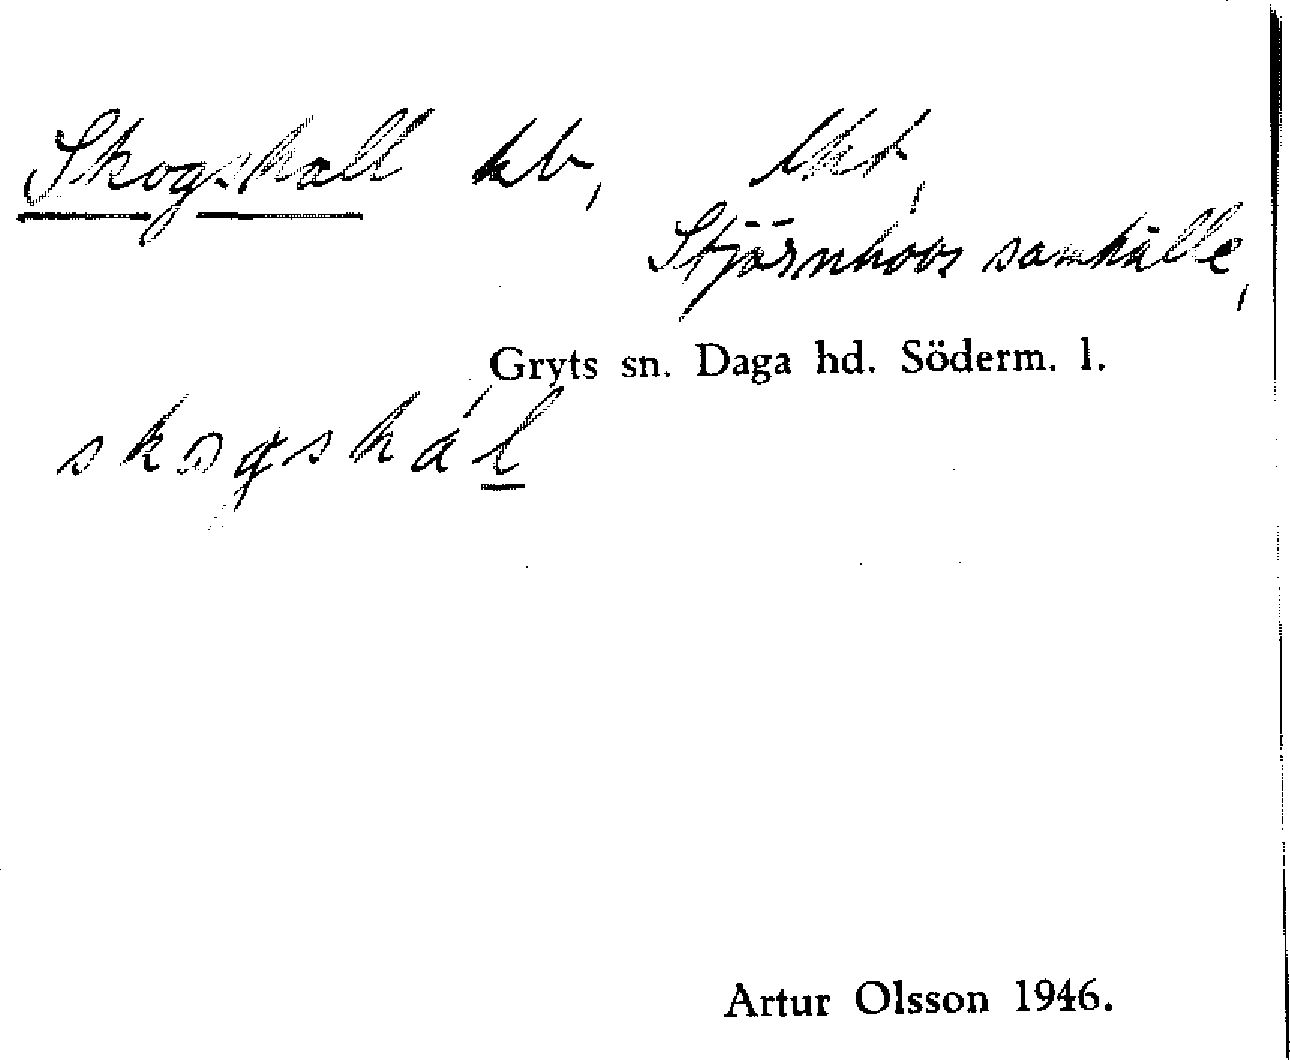 Skogshall kb, lht,
Stjärnhovs samhälle,
Gryts sn. Daga hd. Söderm. l.
skogshál
Artur Olsson 1946.